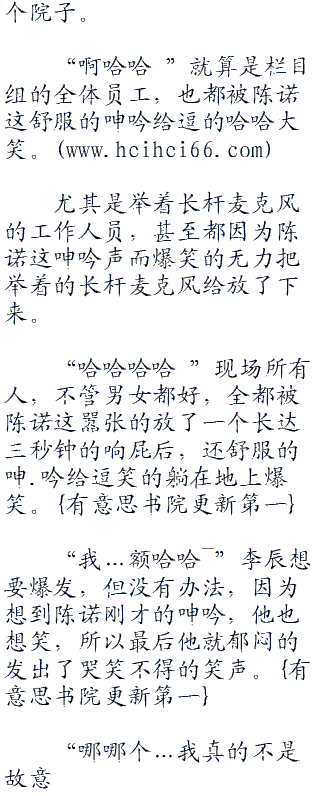 个院子。
“啊哈哈 ”就算是栏目
组的全体员工，也都被陈诺
这舒服的呻吟给逗的哈哈大
笑。(www.hcihci66.com)
尤其是举着长杆麦克风
的工作人员，甚至都因为陈
诺这呻吟声而爆笑的无力把
举着的长杆麦克风给放了下
来。
“哈哈哈哈 ”现场所有
人，不管男女都好，全都被
陈诺这嚣张的放了一个长达
三秒钟的响屁后，还舒服的
呻.吟给逗笑的躺在地上爆
笑。{有意思书院更新第一}
“我…额哈哈¯”李辰想
要爆发，但没有办法，因为
想到陈诺刚才的呻吟，他也
想笑，所以最后他就郁闷的
发出了哭笑不得的笑声。{有
意思书院更新第一}
“哪哪个…我真的不是
故意